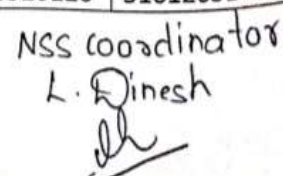 NSS Coordinator
L. Dinesh